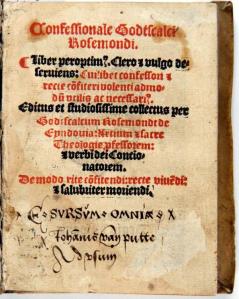 Confessionale Godtscalci
Rosemondi.
Liber peroptimꝰ. Clero ⁊ vulgo de⸗
seruiens: Cuilibet confessori ⁊
recte cōfiteri volenti admo⸗
dū vtilis ac necessariꝰ.
Editus et studiosissime collectus per
Godscalcum Rosemondt de
Eyndouia: Artium ⁊ sacre
Theologie pfessorem:
⁊ verbi dei Concio⸗
natorem.
De modo rite cōfitendi: recte viuēdi:
⁊ salubriter moriendi.
SVRSVM OMNIA
Johannis van putte